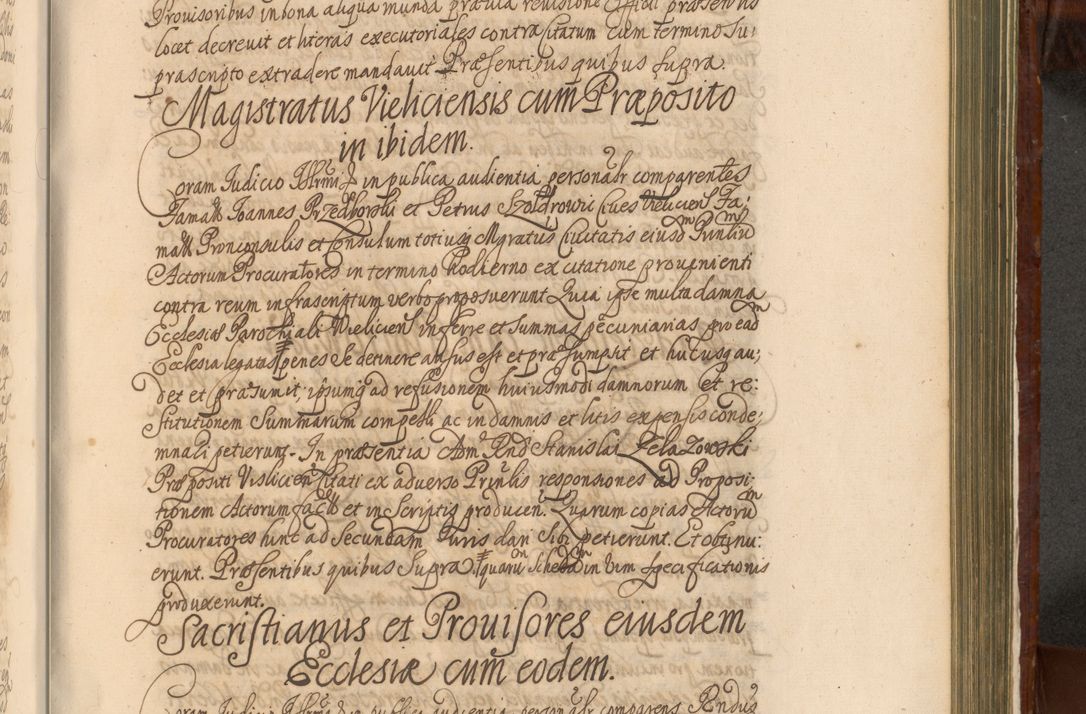 Provisoribus in bona aliqua munda prævia revisione officii præsentis
locet decrevit et literas executoriales contra Citatum cum termino su:
prascripto extradere mandavit Præsentibus quibus supra.
Magistratus Vieliciensis cum Præposito
in ibidem.
Coram Iudicio in publica audientia personalr comparentes
Famati Ioannes Przedborski et Petrus Szoldrowic Cives Vieliciens Fa:
matt Pronconsulis et Consulum totiusq Mgratus Civitatis eiusd
Actorum Procuratores in termino hodierno ex citatione provenienti
contra reum infrascriptum verbo proposuerunt Quia ipse multa damna
Ecclesiæ Parochiali Vieliciens inferre et summas pecuniarias pro ead
Ecclesia legatas penes se detinere ausus est et præsumpsit et hucusq au:
det et præsumit, ipsumq ad refusionem huiusmodi damnorum et re:
stitutionem Summarum compelli ac in damnis et litis expensis conde:
mnali petierunt. In præsentia Adm Rnd Stanislai Zelazowski
Præpositi Visliciens Citati ex adverso Prnlis responsiones ad Proposi:
tionem Actorum et in Scriptis producen. Quarum copias Actorum
Procuratores hint ad secundam Iuris dari sibi petierunt. Et obtinu:
erunt. Præsentibus quibus supra. quarum in vim specificationis
produxerunt.
Sacristianus et Provisores eiusdem
Ecclesiæ cum eodem.
Coram Iudicio in publica audientia personalr comparens Rendus